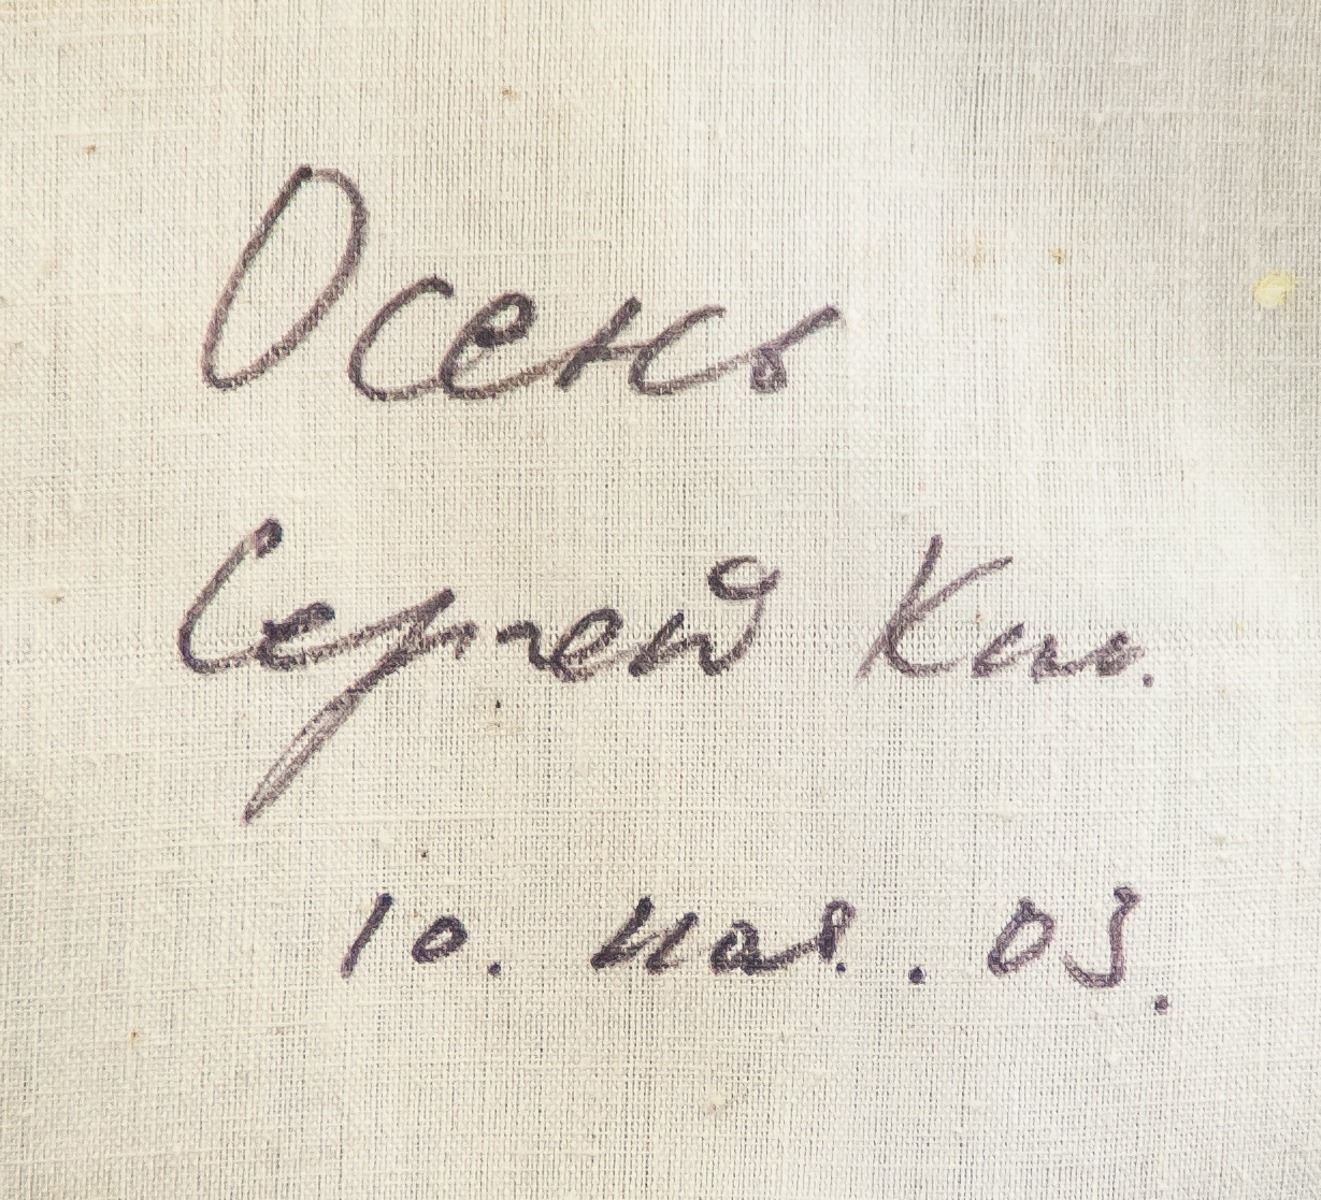 Осень
Сергей
10. мая. 03.